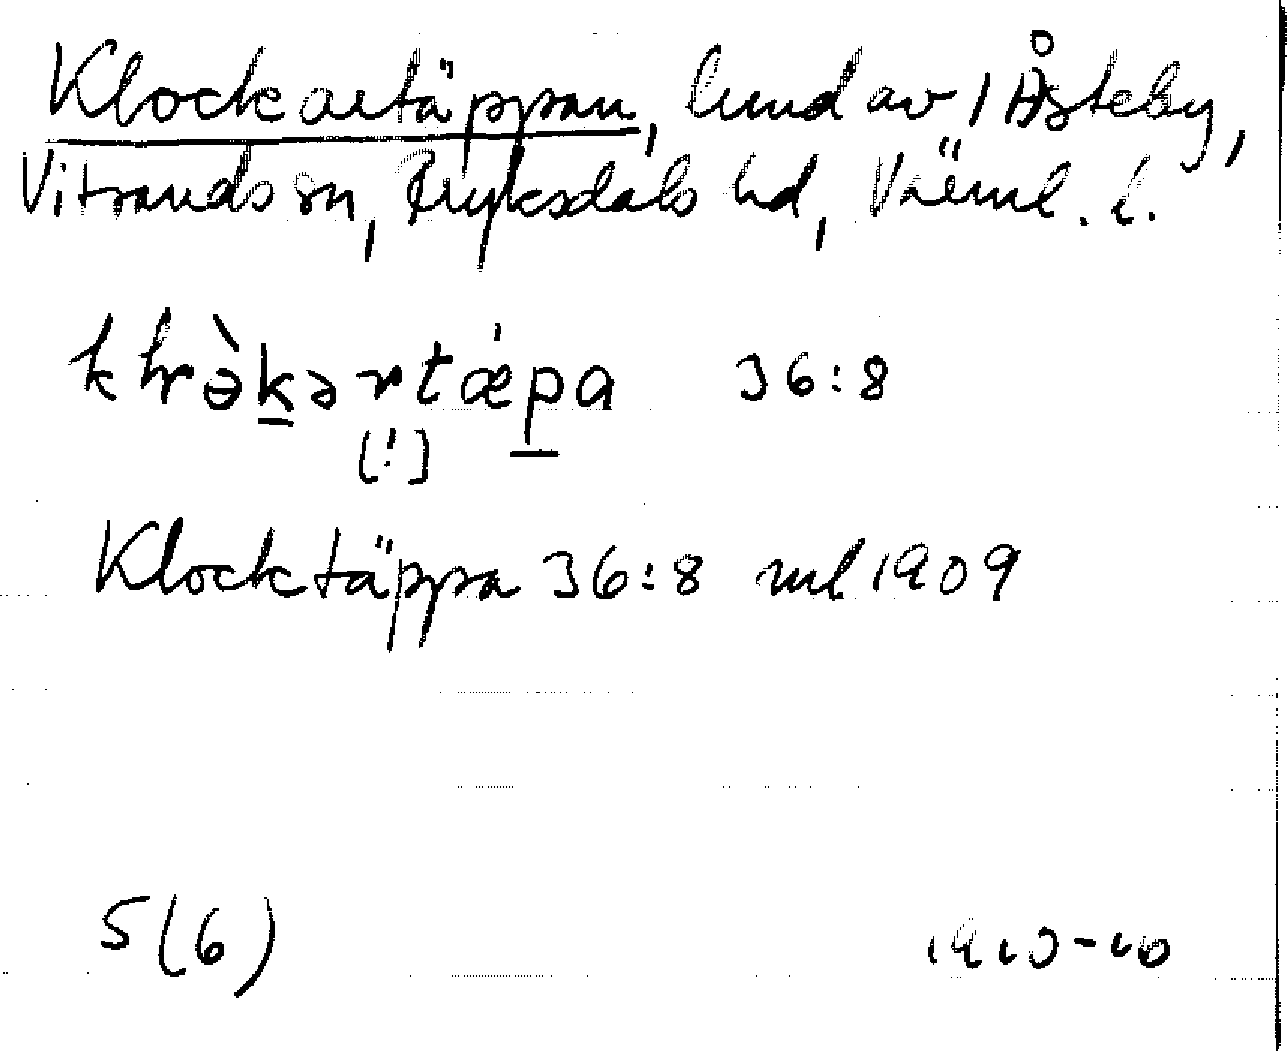 Klockartäppan, lund av 1 Åsteby,
Vitsands sn, Fryksdals hd, Värml. l.
36:8
[!]
Klocktäppa 36:8 ml 1909
5(6)